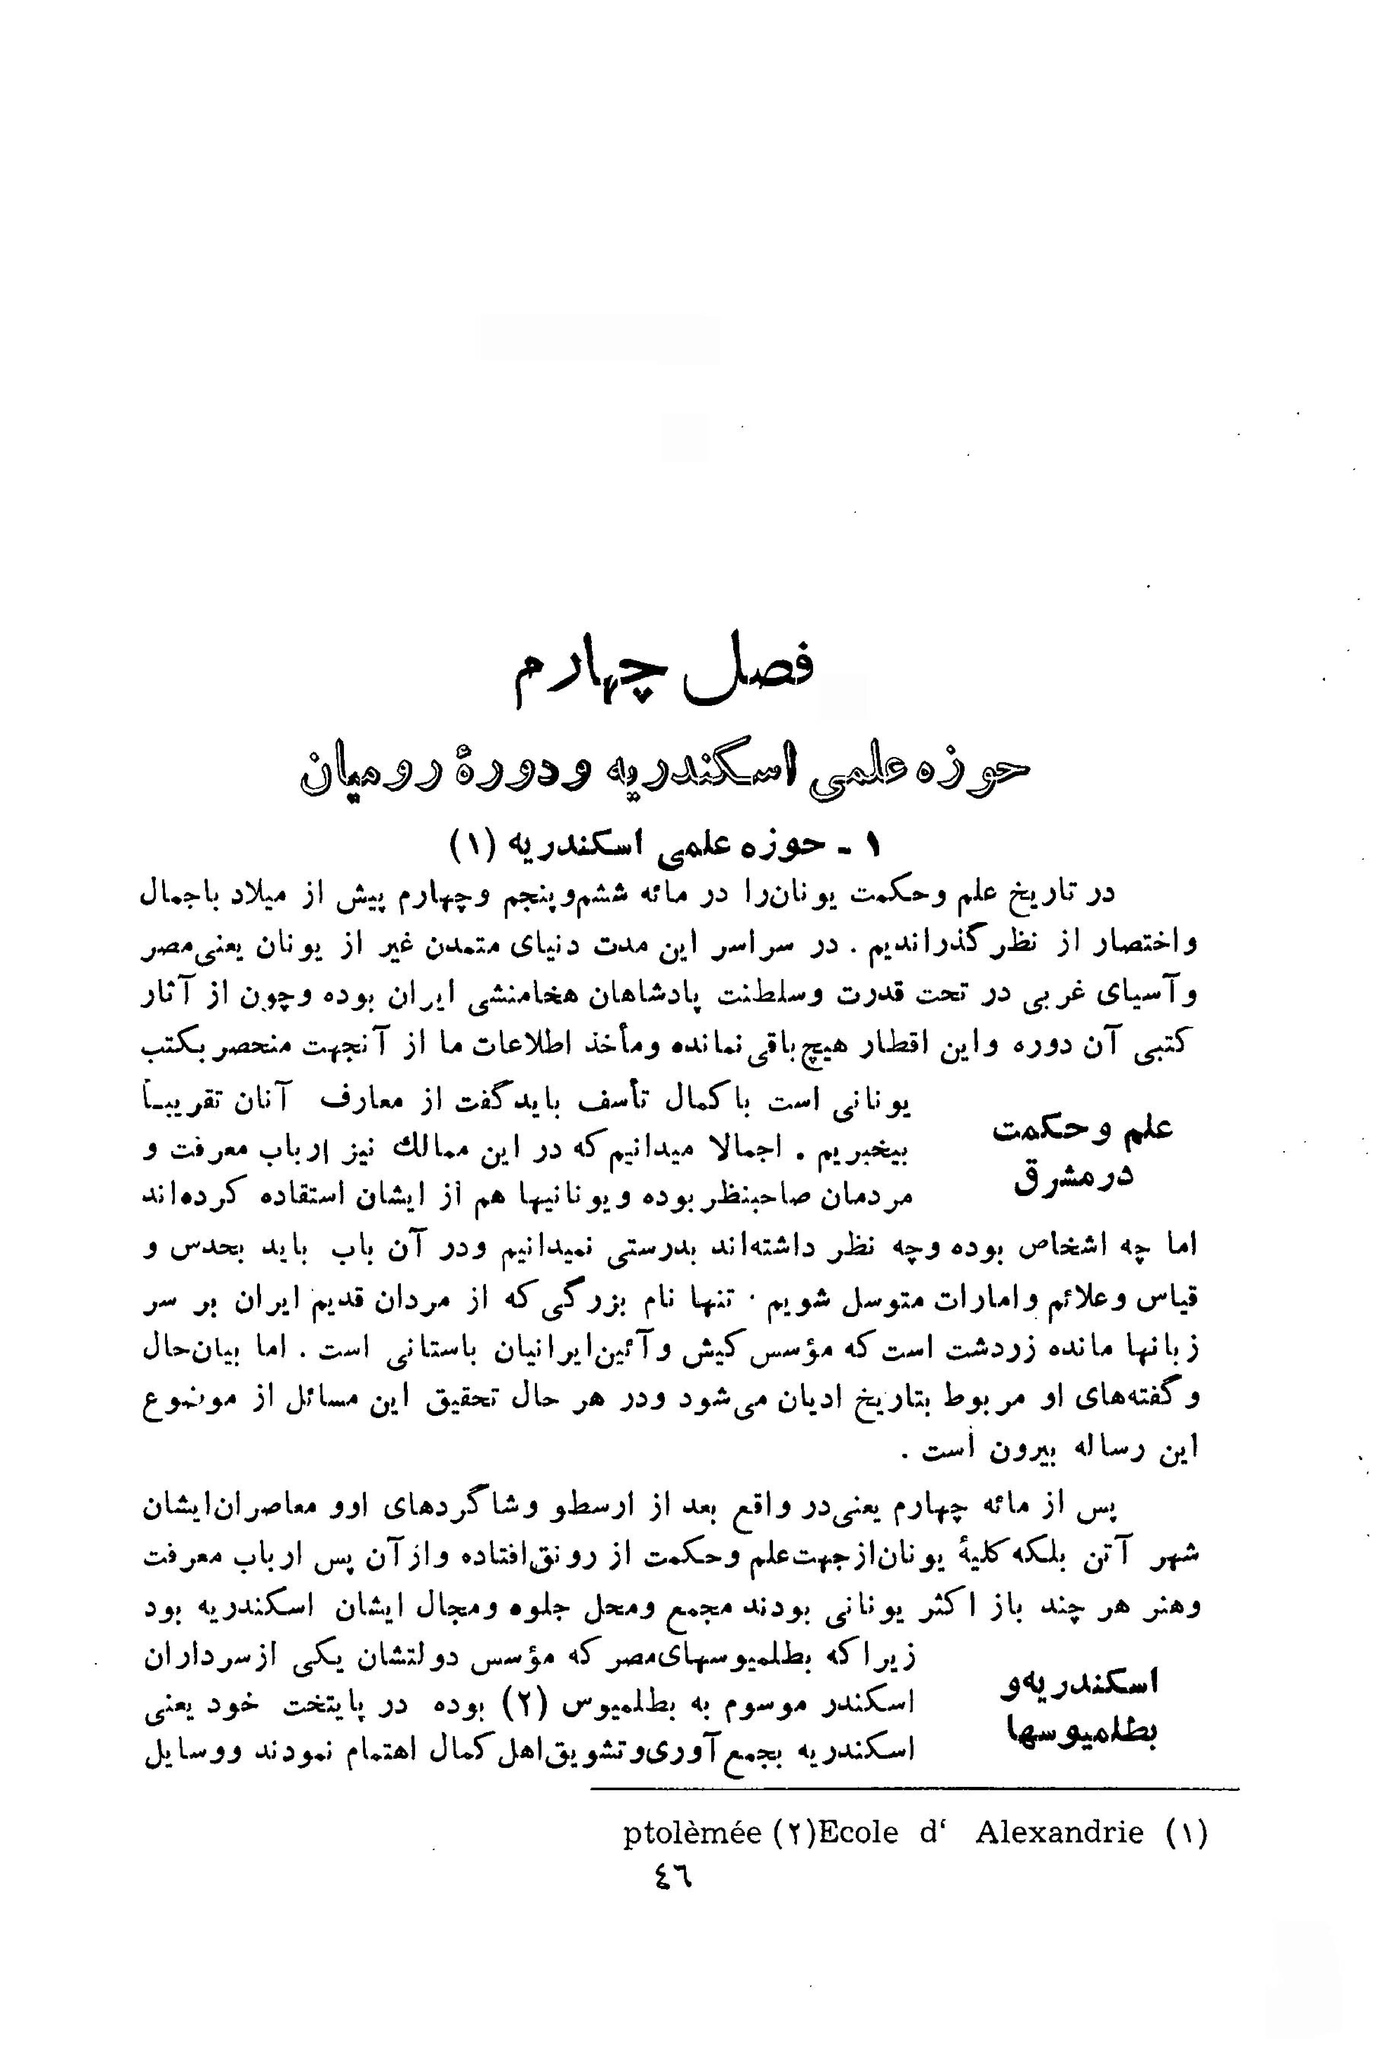 فصل چهارم
حوزه علمی اسکندریه و دورهٔ رومیان
۱ - حوزه علمی اسکندریه (۱)
در تاریخ علم وحکمت یونان‌را در مائه ششم‌وپنجم وچهارم پیش از میلاد باجمال
واختصار از نظر گذراندیم . در سراسر این مدت دنیای متمدن غیر از یونان یعنی‌مصر
وآسیای غربی در تحت قدرت وسلطنت پادشاهان هخامنشی ایران بوده وچون از آثار
کتبی آن دوره واین اقطار هیچ‌باقی‌نمانده ومأخذ اطلاعات ما از آنجهت منحصر بکتب
علم وحکمت
درمشرق
یونانی است باکمال تأسف باید گفت از معارف آنان تقریبـاً
بیخبریم . اجمالا میدانیم که در این ممالك نیز ارباب معرفت و
مردمان صاحبنظر بوده ویونانیها هم از ایشان استقاده کرده‌اند
اما چه اشخاص بوده وچه نظر داشته‌اند بدرستی نمیدانیم ودر آن باب باید بحدس و
قیاس وعلائم وامارات متوسل شویم . تنها نام بزرگی که از مردان قدیم ایران بر سر
زبانها مانده زردشت است که مؤسس کیش وآئین‌ایرانیان باستانی است . اما بیان‌حال
وگفته‌های او مربوط بتاریخ ادیان می‌شود ودر هر حال تحقیق این مسائل از موضوع
این رساله بیرون است .
پس از مائه چهارم یعنی‌در واقع بعد از ارسطو وشاگردهای اوو معاصران‌ایشان
شهر آتن بلکه کلیهٔ یونان‌ازجهت‌علم وحکمت از رونق‌افتاده وازآن پس ارباب معرفت
وهنر هر چند باز اکثر یونانی بودند مجمع ومحل جلوه ومجال ایشان اسکندریه بود
اسکندریه‌و
بطلمیوسها
زیراکه بطلمیوسهای‌مصر که مؤسس دولتشان یکی ازسرداران
اسکندر موسوم به بطلمیوس (۲) بوده در پایتخت خود یعنی
اسکندریه بجمع‌آوری‌وتشویق‌اهل کمال اهتمام نمودند ووسایل
ptolèmée (۲)Ecole d‘ Alexandrie (۱)
٤٦